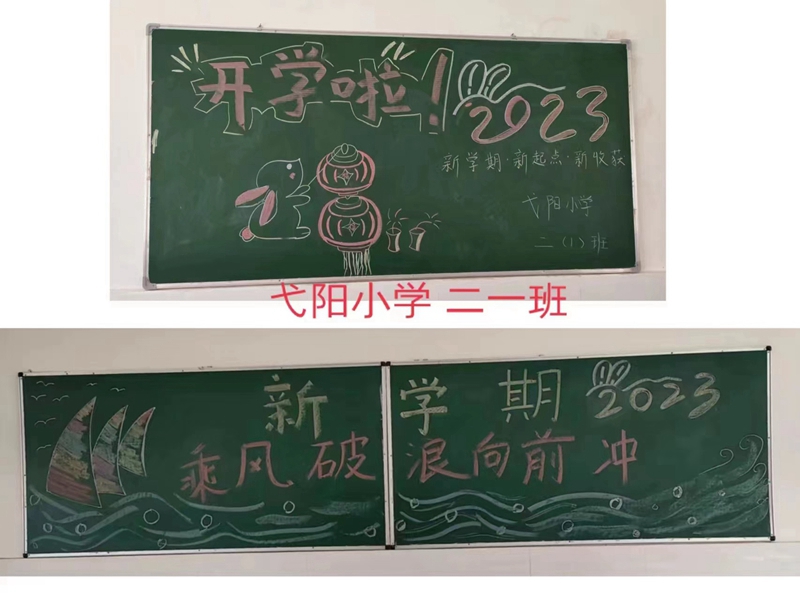 开学啦！2023
新学期·新起点·新收获
弋阳小学
二（1）班
弋阳小学 二一班
新学期2023
乘风破浪向前冲